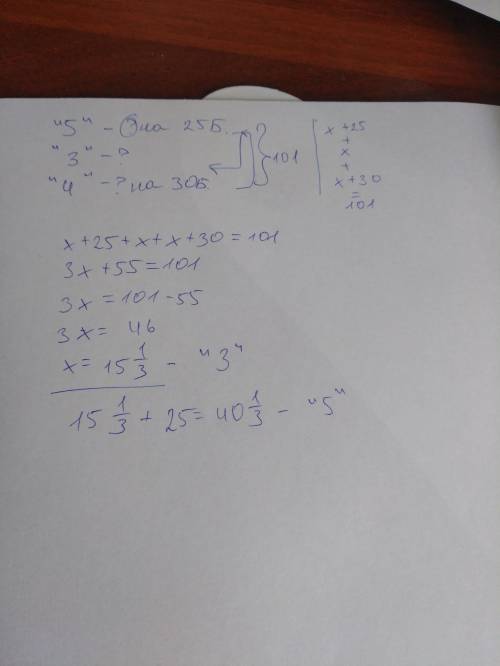 "5" - ? на 25Б.
"3" - ?
"4" - ? на 30Б.
101
x + 25
+
x
+
x + 30
=
101
x + 25 + x + x + 30 = 101
3x + 55 = 101
3x = 101 - 55
3x = 46
x = 15 1/3 - "3"
15 1/3 + 25 = 40 1/3 - "5"